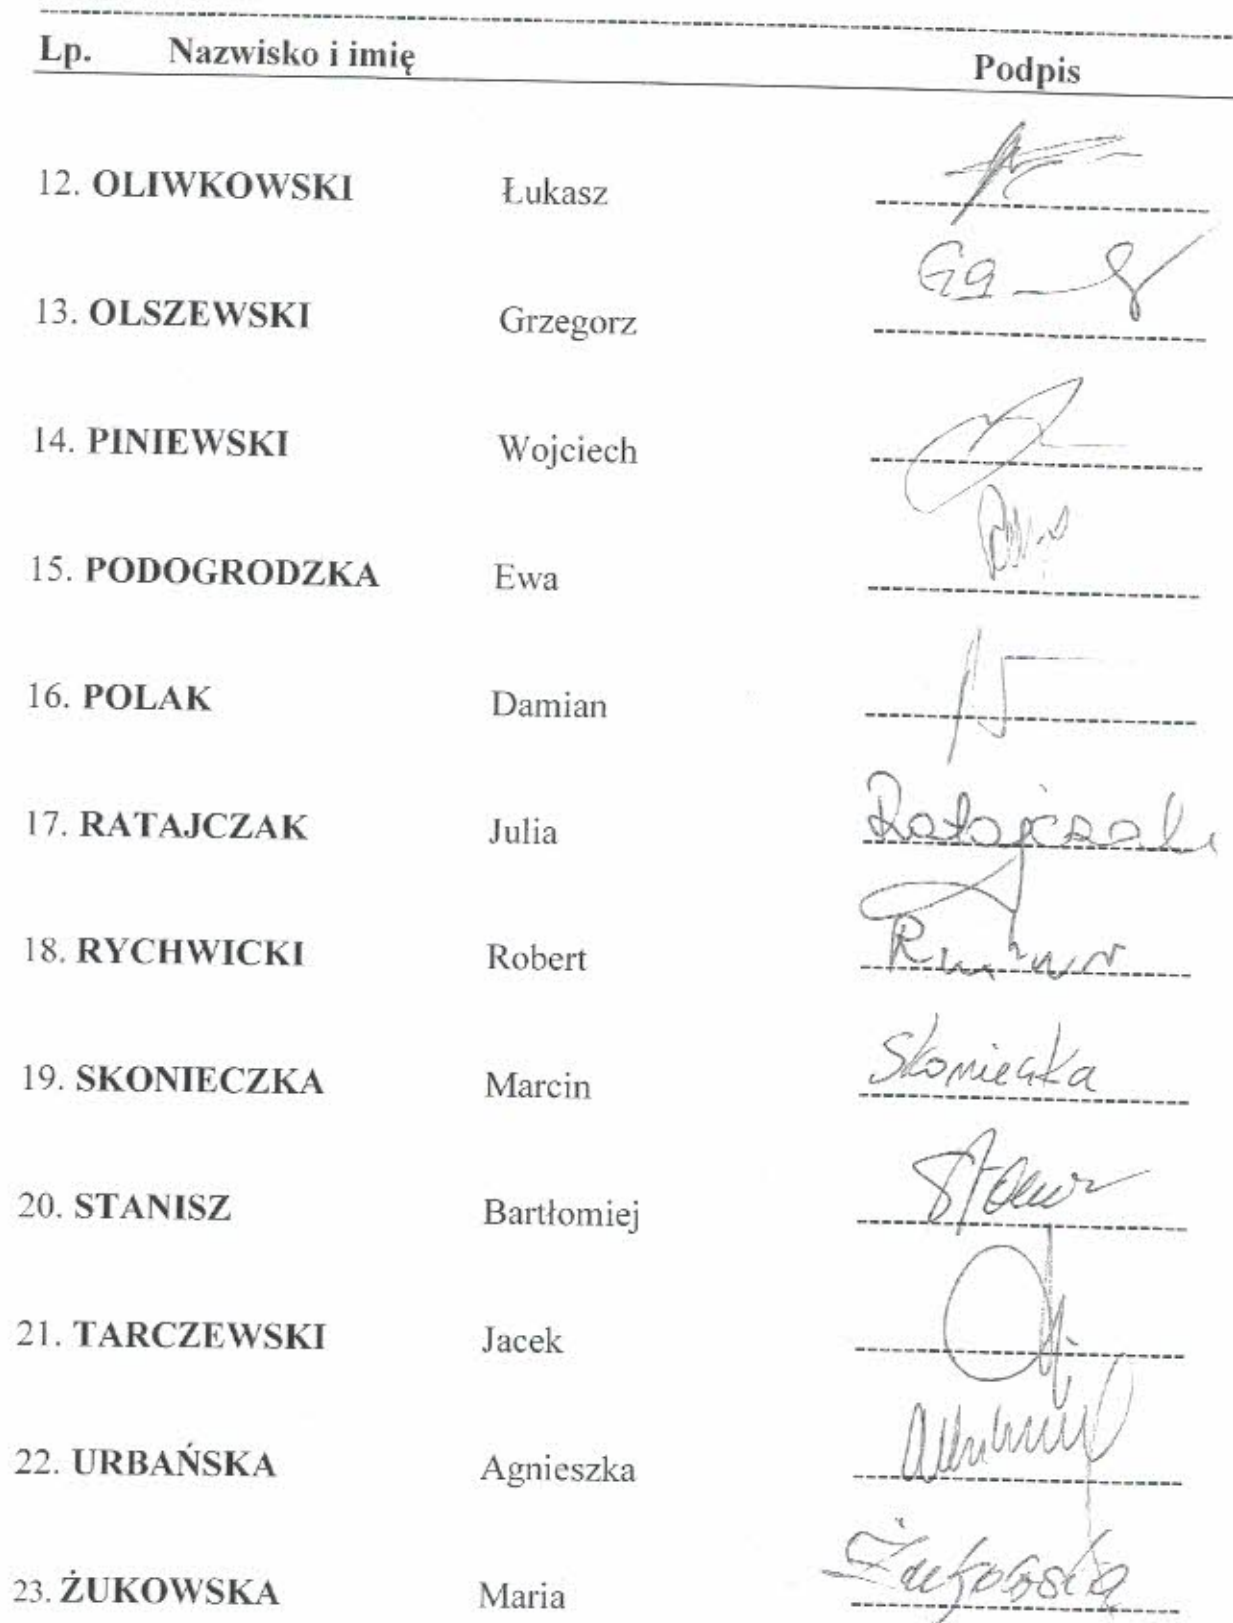 Lp. Nazwisko i imię Podpis
12. OLIWKOWSKI Łukasz
13. OLSZEWSKI Grzegorz
14. PINIEWSKI Wojciech
15. PODOGRODZKA Ewa
16. POLAK Damian
17. RATAJCZAK Julia Ratajczak
18. RYCHWICKI Robert
19. SKONIECZKA Marcin Skonieczka
20. STANISZ Bartłomiej
21. TARCZEWSKI Jacek
22. URBAŃSKA Agnieszka
23. ŻUKOWSKA Maria Żukowska